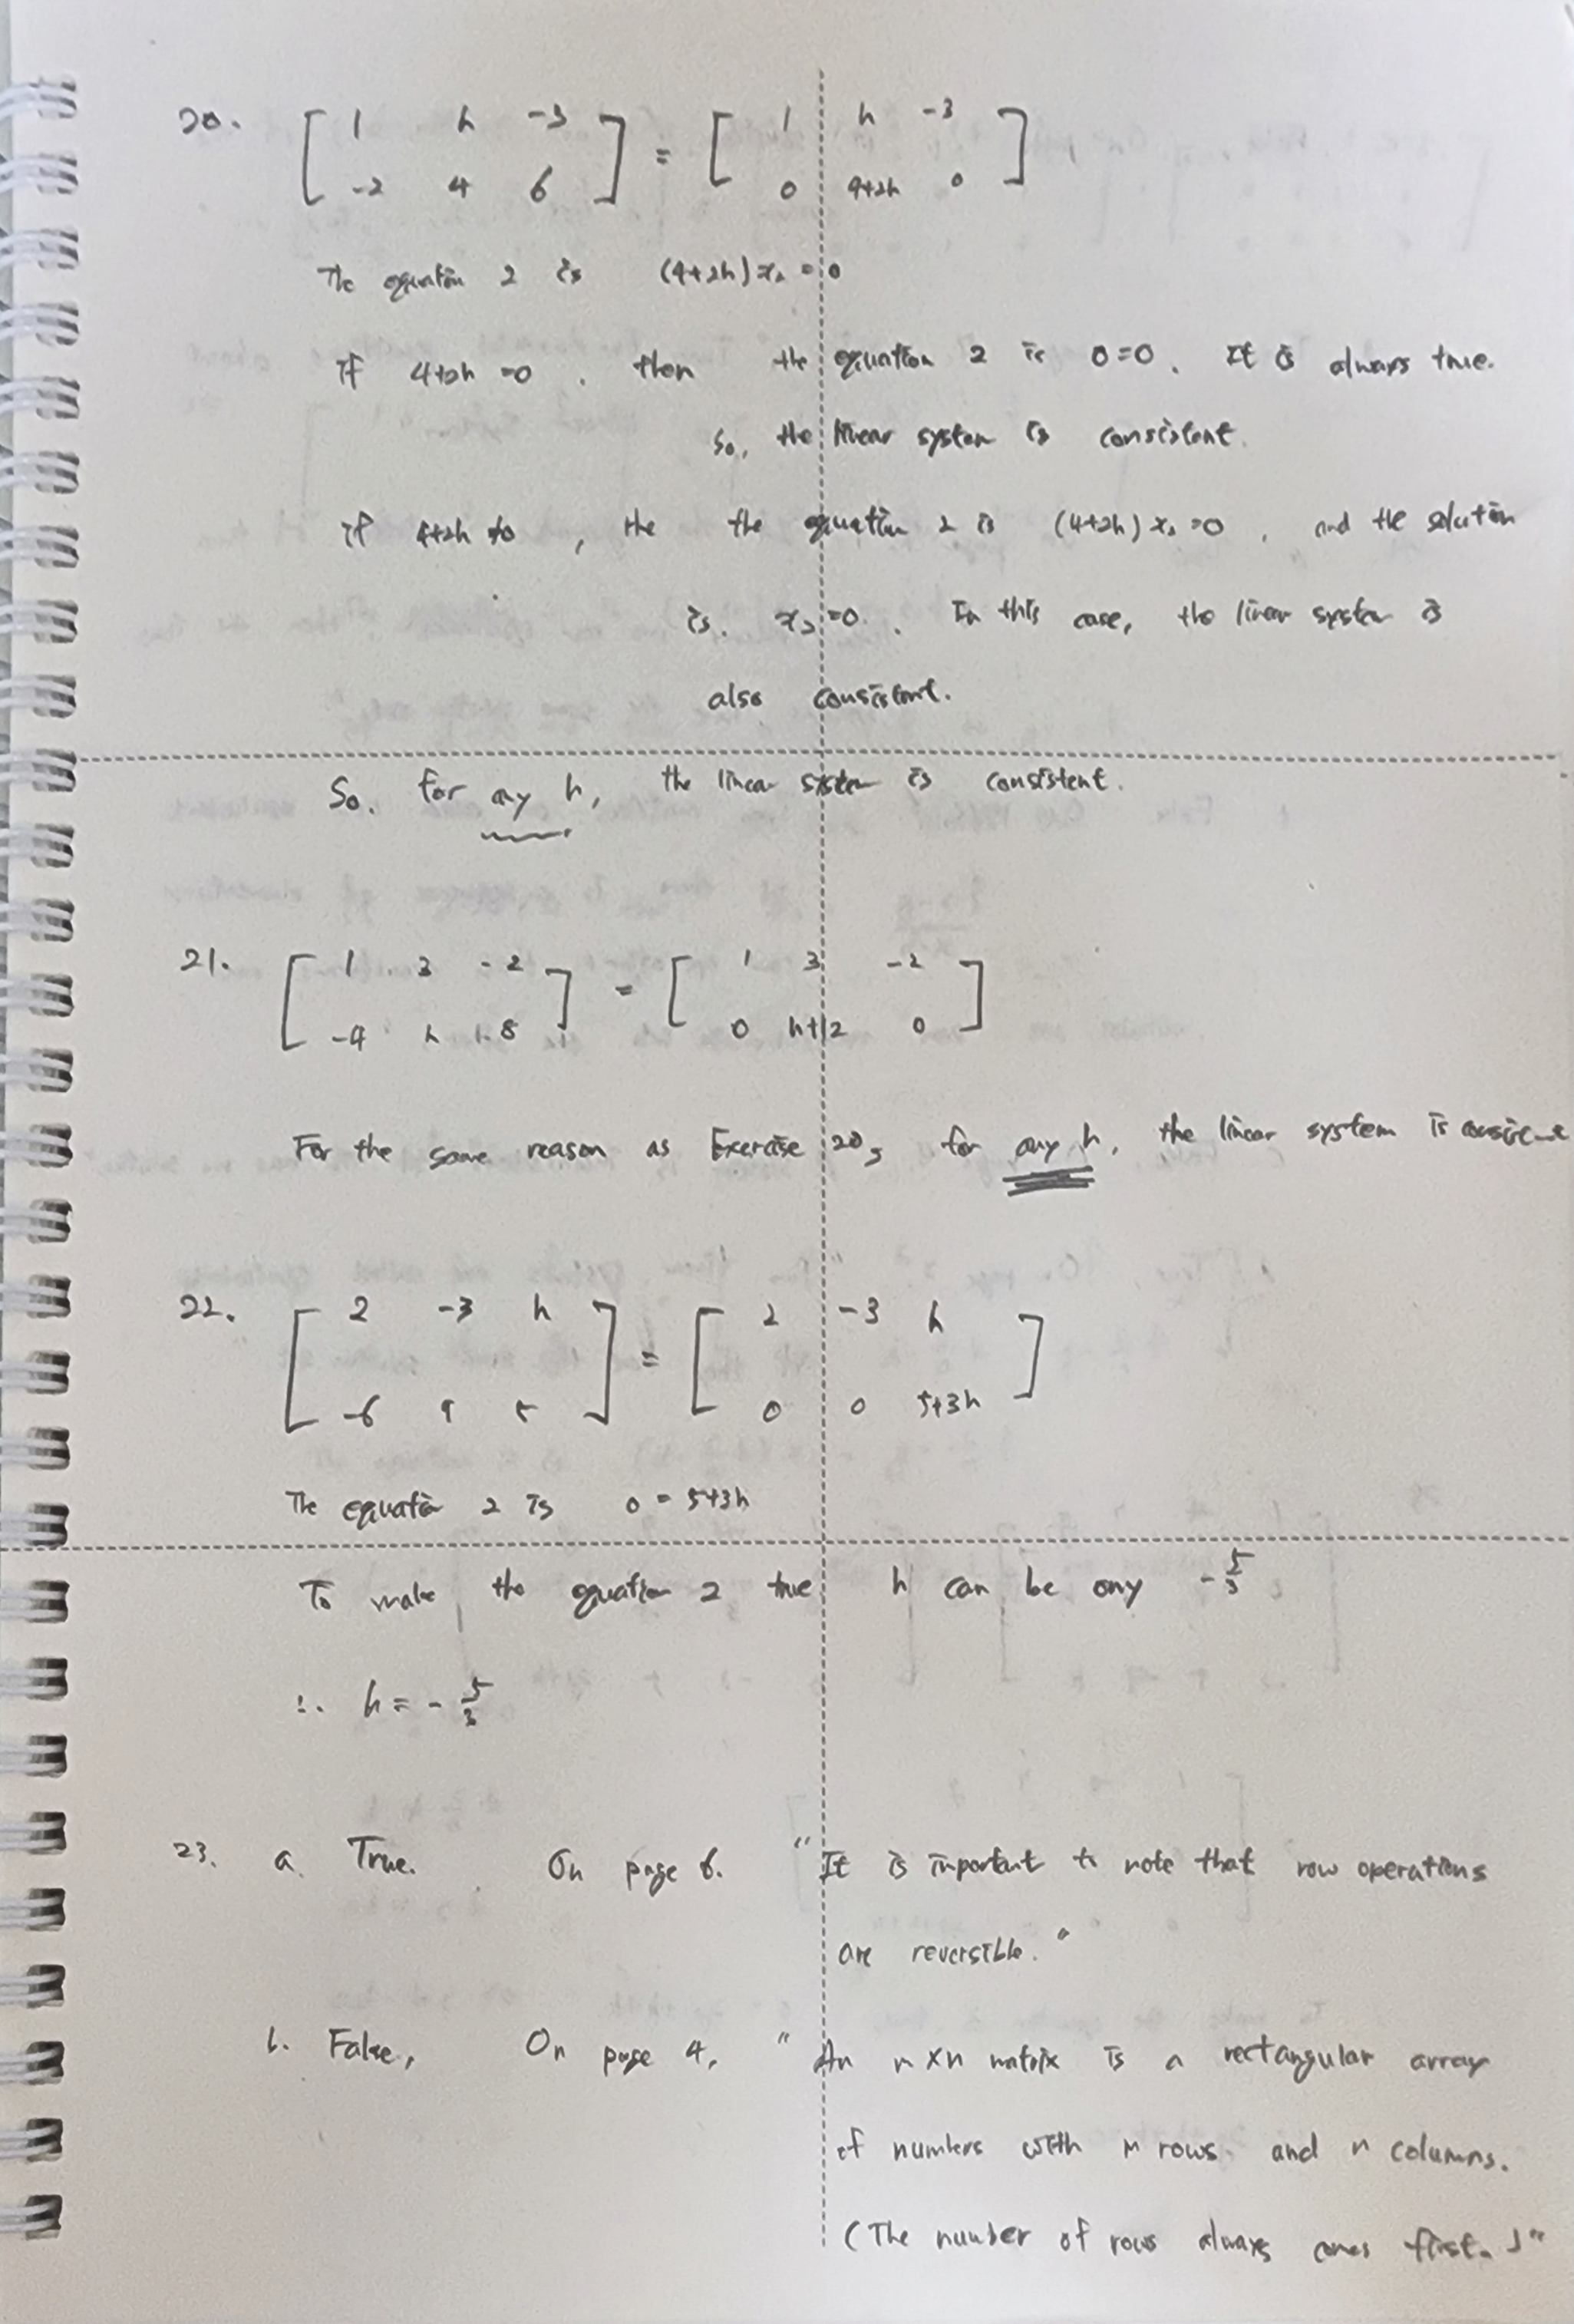 20. [ 1 h -3 ] = [ 1 h -3 ]
[ -2 4 6 ] [ 0 4+2h 0 ]
The equation 2 is (4+2h)x₂ = 0
If 4+2h =0 , then the equation 2 is 0=0. It is always true.
So, the linear system is consistent.
If 4+2h ≠0 , the the equation 2 is (4+2h) x₂ =0 , and the solution
is. x₂=0. In this case, the linear system is
also consistent.
So. for any h, the linear system is consistent.
21. [ 1 3 -2 ] = [ 1 3 -2 ]
[ -4 h 8 ] [ 0 h+12 0 ]
For the same reason as Exercise 20, for any h, the linear system is
22. [ 2 -3 h ] = [ 2 -3 h ]
[ -6 9 5 ] [ 0 0 5+3h ]
The equation 2 is 0 = 5+3h
To make the equation 2 true h can be any -5/3
∴ h = -5/3
23. a. True. On page 6. "It is important to note that row operations
are reversible."
b. False, On page 4, "An m×n matrix is a rectangular array
of numbers with m rows and n columns.
(The number of rows always comes first.)"